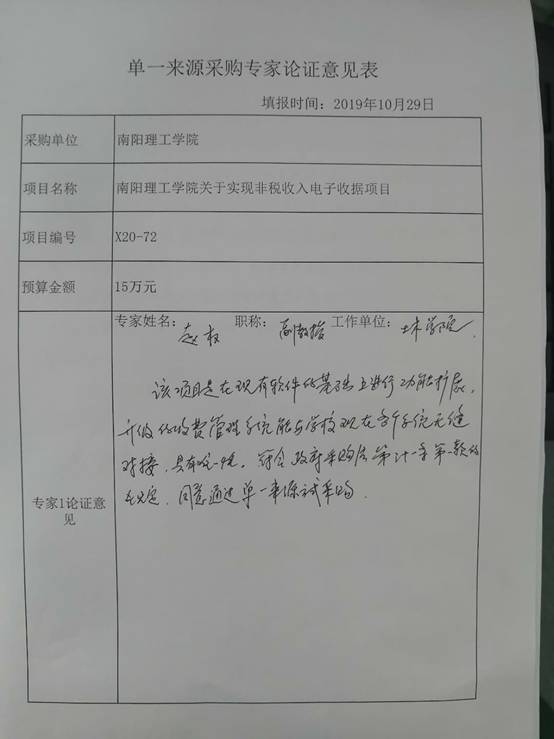 单一来源采购专家论证意见表
填报时间：2019年10月29日
采购单位 南阳理工学院
项目名称 南阳理工学院关于实现非税收入电子收据项目
项目编号 X20-72
预算金额 15万元
专家姓名： 权 职称：副教授 工作单位： 土木学院
该项目是在现有软件的基础上进行功能扩展，
升级的收费管理系统能与学校现在各个系统无缝
对接，具有唯一性。符合政府采购法第卅一条第一款的
规定，同意通过单一来源式采购。
专家1论证意
见